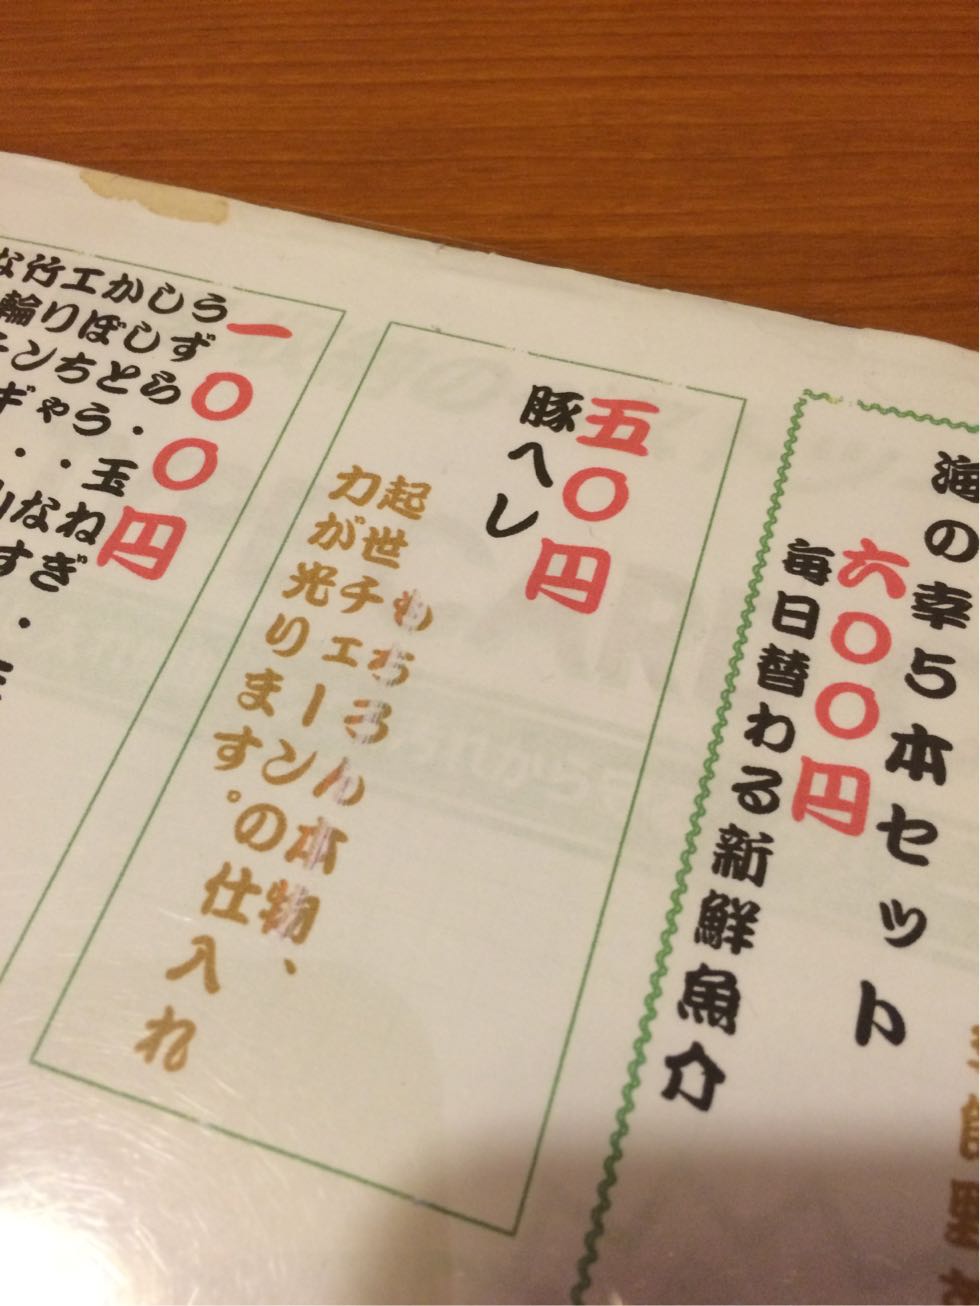 海の幸5本セット
六〇〇円
毎日替わる新鮮魚介
五〇円
豚ヘレ
もちろん本物、
起世チェーンの仕入れ
力が光ります。
一〇〇円
うずら・玉ねぎ・
ししとう・なす
かぼちゃ・山
エリンギ・
竹輪チ
な